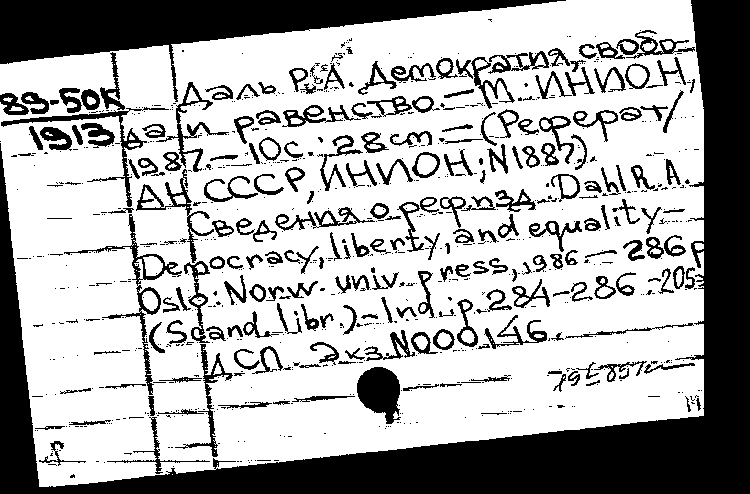 89-50K
1913
Даль Р.А. Демократия, свобо-
да и равенство. — М.: ИНИОН,
1987. — 10с.; 28cm. — (Реферат/
АН СССР, ИНИОН; N1887).
Сведения о реф.изд.: Dahl R.A.
Democracy, liberty, and equality —
Oslo: Norw. univ. press, 1986. — 286 p
(Scand. libr.) - Ind.: p. 284-286. -205
ДСП. Экз. N000146.
М